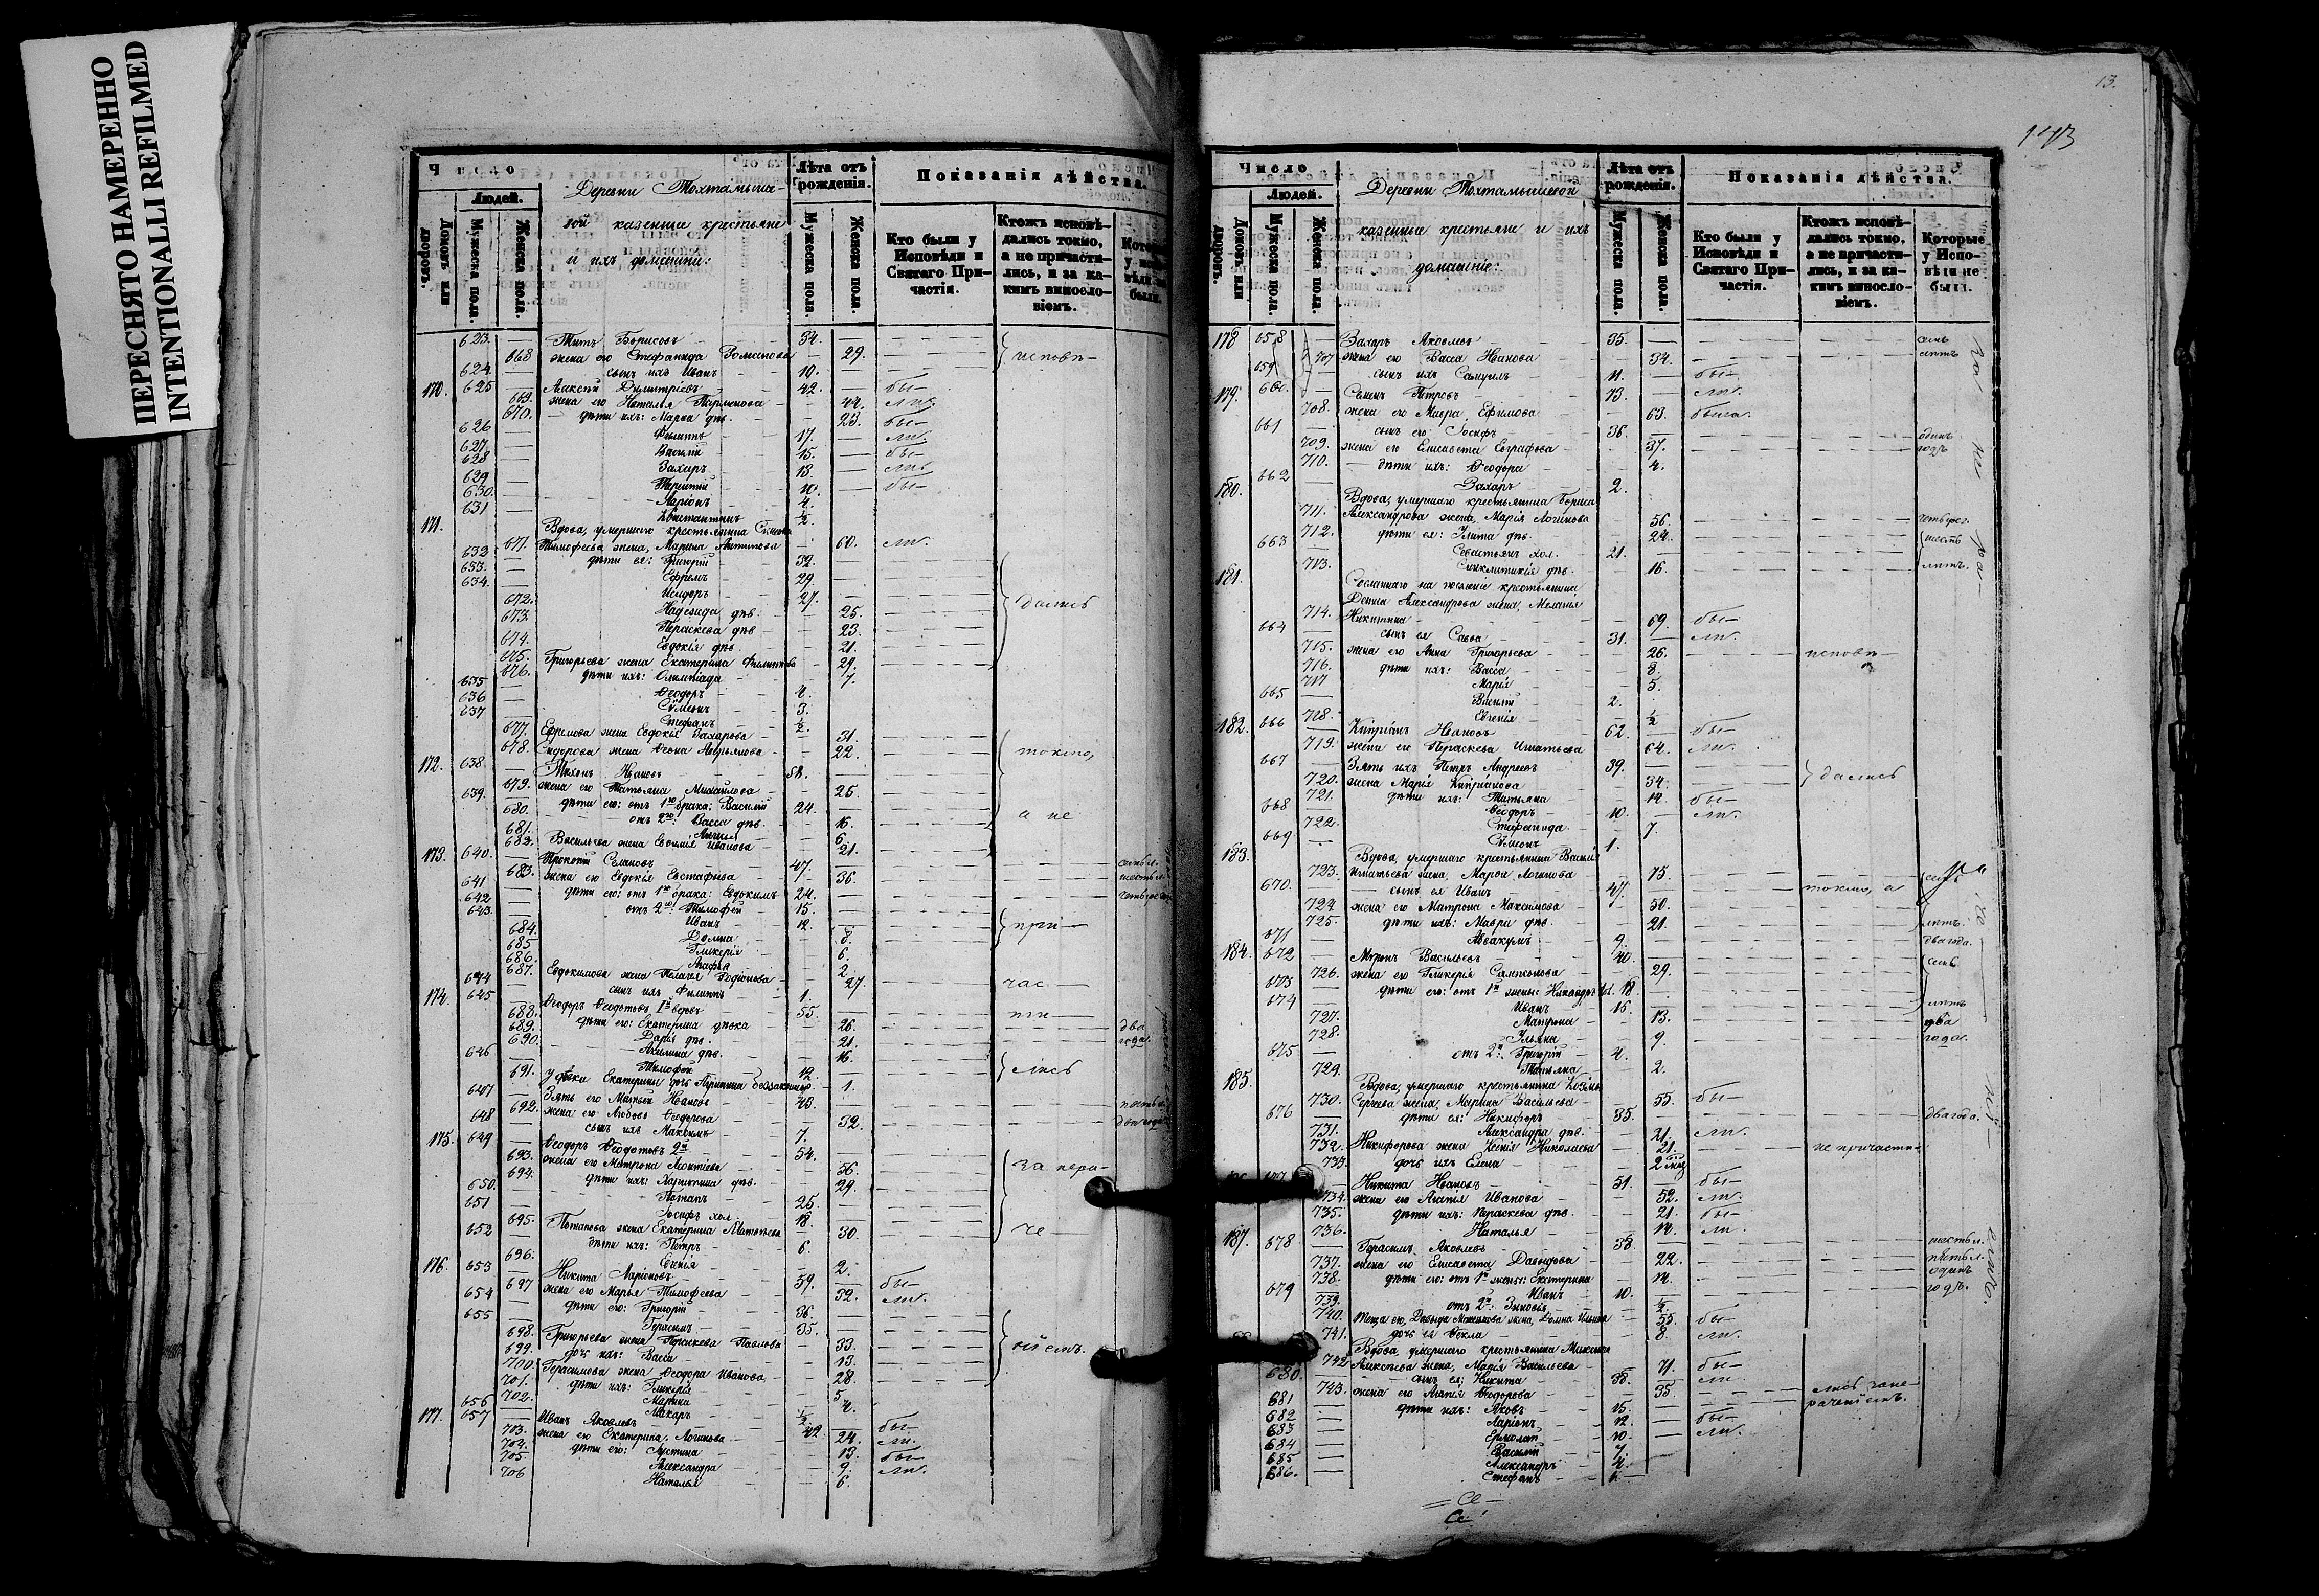 ПЕРЕСНЯТО НАМЕРЕННО
INTENTIONALLI REFILMED
Лѣта отъ рожденія.
Показанія дѣйства.
Людей.
Домовъ или дворовъ.
Мужеска пола.
Женска пола.
Деревни Тохтамыше-
вой казенные крестьяне
и ихъ домашніе:
Мужеска пола.
Женска пола.
Кто были у Исповѣди и Святаго Причастія.
Ктожъ исповѣдались токмо, а не причастились, и за какимъ винословіемъ.
623. — Титъ Борисовъ 34.
668 жена его Стефанида Романова 29. исповѣ-
624. сынъ ихъ Иванъ 10.
170. 625 Алексѣй Димитріевъ 42. бы-
669. жена его Наталья Парменова 44. ли.
670. дѣти ихъ: Марѳа дѣв. 23. бы-
626 Филиппъ 17. ли.
627 Василій 15. бы-
628 Захаръ 13. ли.
629 Терентій 10. бы-
630. Ларіонъ 4.
631 Константинъ ½.
171. Вдова, умершаго крестьянина
671. Тимофеева жена, Марина Антипова 60. ли.
632 дѣти ея: Григорій 32.
633. Ефремъ 29.
634. Исидоръ 27.
672. Надежда дѣв. 25. дались
673. Параскева дѣв 23.
674. Евдокія дѣв. 21.
675. Григорьева жена Екатерина Филиппова 29.
676. дѣти ихъ: Олимпіада 7.
635 Ѳеодоръ 4.
636 Сѵмеонъ 3.
637 Стефанъ ½.
677. Ефремова жена Евдокія Захарова 31.
678. Сидорова жена Ѳеона 22. токмо,
172. 638. Тихонъ Ивановъ 58.
679. жена его Татьяна Михайлова 25.
639. дѣти его: отъ 1го брака: Василій 24.
680. отъ 2го: Васса дѣв. 16. а не
681. 6.
682. Васильева жена Евѳимія Иванова 21.
173. 640. Прокопій Селановъ 47.
683. жена его Евдокія Евстафьева 36.
641 дѣти его: отъ 1го брака: Евдокимъ 24.
642 отъ 2го: Тимофей 15.
643. Иванъ 12. при-
684. Домна 8.
685 Гликерія 6.
686. Агафья 2.
687. Евдокимова жена Пелагія Родіонова 27. час-
644 сынъ ихъ Филиппъ 1.
174. 645 Ѳеодоръ Ѳеодотовъ 1й вдовъ 55. ти-
688. дѣти его: Екатерина дѣвка 26. два
689. Дарія дѣв. 21. года.
690. Акилина дѣв. 16.
646 Тимофей 12. лись
691. У дѣвки Екатерины дочь 1.
647 Зять его Матвѣй Ивановъ 43.
692. жена его Любовь Ѳеодорова 32.
648 сынъ ихъ Максимъ 7.
175. 649 Ѳеодоръ Ѳеодотовъ 2й 54.
693. жена его Матрона Леонтіева 56. за нера-
694. дѣти ихъ: Харитина дѣв. 29.
650. Потапъ 25.
651 Іосифъ хол. 18.
695. Потапова жена Екатерина Матвѣева 30. че
652 дѣти ихъ: Петръ 6.
696. Евгенія 2.
176. 653 Никита Ларіоновъ 59. бы-
697 жена его Марья Тимофеева 32. ли.
654 дѣти его: Григорій 36.
655 Герасимъ 35.
698. Григорьева жена Параскева Павлова 33. ніемъ.
699. дочь ихъ: Васса 13.
700 Герасимова жена Ѳеодора Иванова 28.
701. дѣти ихъ: Гликерія 5.
702. Марина 4.
656 Макаръ ½.
177. 657 Иванъ Яковлевъ 42. бы-
703. жена его Екатерина Логинова 24. ли.
704. дѣти его: Іустина 13. бы-
705. Александра 9. ли.
706 Наталья 6.
13.
Число.
Людей.
Домовъ или дворовъ.
Мужеска пола.
Женска пола.
Деревни Тохтамышевой
казенные крестьяне и ихъ
домашніе:
Лѣта отъ рожденія.
Мужеска пола.
Женска пола.
Показанія дѣйства.
Кто были у Исповѣди и Святаго Причастія.
Ктожъ исповѣдались токмо, а не причастились, и за какимъ винословіемъ.
Которые у Исповѣди не были.
178 658 Захаръ Яковлевъ 35. семь
707 жена его Васса Иванова 34. лѣтъ
659 сынъ ихъ Самуилъ 11. бы-
179. 660. Семенъ Петровъ 73. ли.
708. жена его Мавра Ефимова 63. была.
661 сынъ его Іосифъ 36. одинъ
709. жена его Елисавета Евграфова 37. годъ
710. дѣти ихъ: Ѳеодора 4.
662 Захаръ 2.
180. Вдова, умершаго крестьянина Бориса
711. Александрова жена, Марія Логинова 56.
712. дѣти ея: Улита дѣв. 24. шесть
663 Севастьянъ хол. 21.
713. Синклитикія дѣв. 16. лѣтъ.
181. Сосланнаго на поселеніе крестьянина
Александрова жена, Меланія
714. Никитина 69. бы-
664 сынъ ея Савва 31. ли.
715. жена его Анна Григорьева 26. исповѣ-
716. дѣти ихъ: Васса 8.
717 Марія 5.
665 Василій 2.
718. Евгенія ½
182. 666 Кипріанъ Ивановъ 62. бы-
719. жена его Параскева Игнатьева 64. ли.
667 Зять ихъ Петръ Андреевъ 39.
720. жена Марія Кипріанова 34. дались
721. дѣти ихъ: Татьяна 14. бы-
668 Ѳеодоръ 10. ли.
722. Стефанида 7.
669 Сѵмеонъ 1.
183. Вдова, умершаго крестьянина Василія
723. Игнатьева жена, Марѳа Логинова 75.
670. сынъ ея Иванъ 47. токмо, а
724 жена его Матрона Максимова 50.
725. дѣти ихъ: Мавра дѣв. 21. лѣтъ.
671 Аввакумъ 9. два года.
184. 672 Миронъ Васильевъ 40. семь
726. жена его Гликерія Сампсонова 29.
673 дѣти его: отъ 1й жены: Никаноръ хол. 18.
674 Иванъ 15. лѣтъ
727. Матрона 13. два
728. Ульяна 9. года.
675 отъ 2й: Григорій 4.
729. Татьяна 2.
185. Вдова, умершаго крестьянина Козмы
730. Сергѣева жена, Марина Васильева 55. бы-
676 дѣти ея: Никифоръ 35. два года.
731. Александра дѣв. 21. ли.
732. Никифорова жена Ксенія Николаева 21. не причасти-
733. дочь ихъ Елена 2 мѣс
Никита Ивановъ 51. бы-
734. жена его Агапія Иванова 52. ли.
735. дѣти ихъ: Параскева дѣв. 21. бы-
736. Наталья 14. ли
187. 678 Герасимъ Яковлевъ 38. шесть л.
737. жена его Елисавета Давыдова 22. пять л.
738. дѣти его: отъ 1й жены: Екатерина 14. одинъ
679 Иванъ 10. годъ.
739. отъ 2й: Зиновія ½.
740. Теща его, Давыда Максимова жена, Домна Ильина 55. бы-
741. дочь ея Ѳекла 8. ли.
Вдова, умершаго крестьянина Максима
742 Алексѣева жена, Марія Васильева 71. бы-
680. сынъ ея: Никита 38. ли
743. жена его Агапія Ѳеодорова 35. лись за не-
681 дѣти ихъ: Яковъ 15. раченіемъ.
682 Ларіонъ 12. бы-
683 Ермолай 10. ли.
684 Василій 7.
685 Александръ 4.
686. Стефанъ 1.